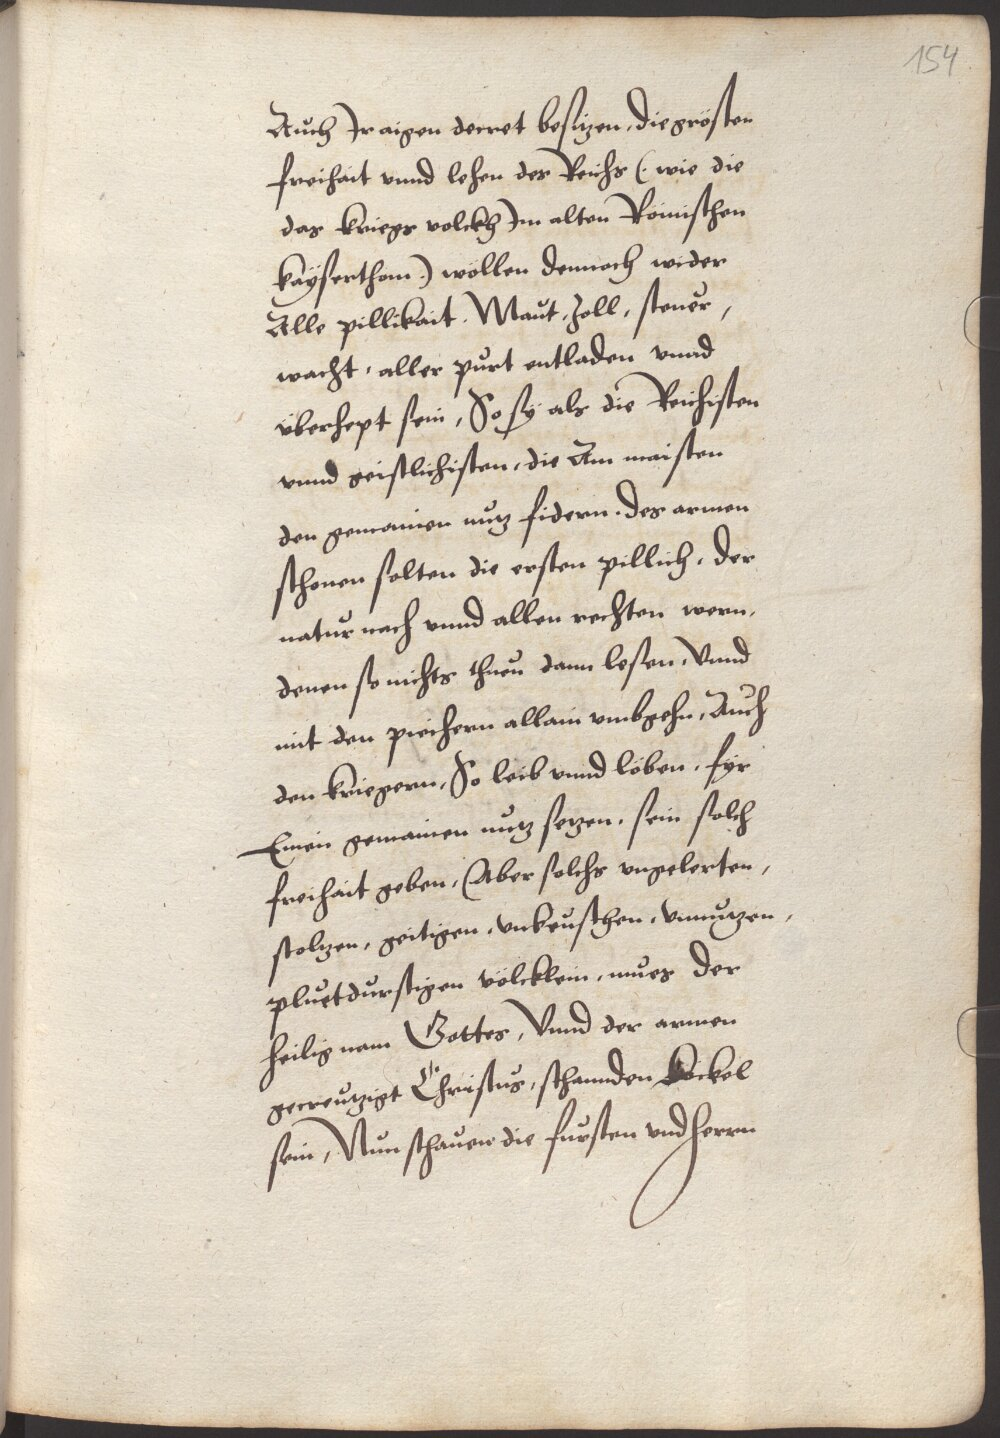 154
Auch Ir aigen decret besitzen, die grösten
freihait vnnd lehen des Reichs (: wie die
das kriegs volckh Im alten Römischen
kaÿserthom:) wöllen dennoch wider
Alle pillikait. Maut, Zoll, steuer,
wacht, aller purt entladen vnnd
überhept sein, So sÿ als die Reichisten
vnnd geistlichisten, die Am maisten
den gemainen nutz fidern, des armen
schonen solten die ersten pillich, der
natur nach vnnd allen rechten wern,
denen so nichts thuen dann lesen, Vnnd
mit den piechern allain vmbgehn, Auch
den kriegern, So leib vnnd löben, fÿr
Einen gemainen nutz setzen, sein solch
freihait geben, (Aber solchs vngelerten,
stoltzen, geitigen, vnkeuschen, vnnutzen,
pluetdurstigen völcklein, mues der
heilig nam Gottes, Vnnd der armen
gecreutzigt Christus, schannden deckel
sein, Nun schauen die fursten vnd herrn